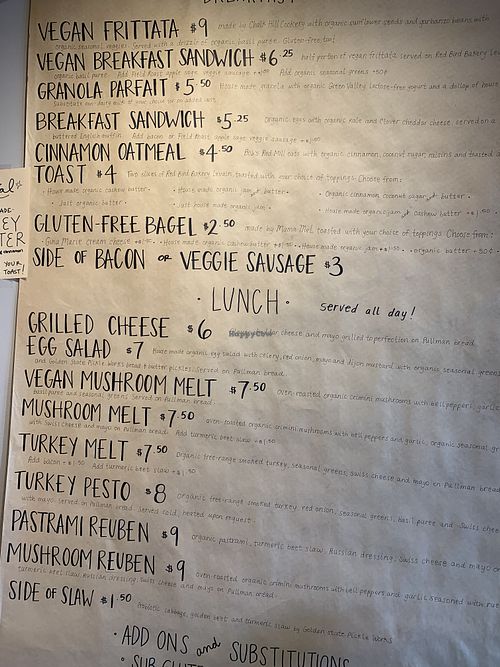 BREAKFAST
VEGAN FRITTATA $9 made by Chalk Hill Cookery with organic sunflower seeds and garbanzo beans with
organic seasonal veggies. Served with a drizzle of organic basil puree. Gluten-free, too!
VEGAN BREAKFAST SANDWICH $6.25 half portion of vegan frittata served on Red Bird Bakery
organic basil puree. Add Field Roast apple sage veggie sausage Add organic seasonal greens
GRANOLA PARFAIT $5.50 House made granola with organic Green Valley Lactose-free yogurt and a dollop of house
BREAKFAST SANDWICH $5.25 Organic eggs with organic kale and Clover cheddar cheese, served on a
buttered English muffin. Add bacon or Field Roast apple sage veggie sausage
CINNAMON OATMEAL $4.50 Bob's Red Mill oats with organic cinnamon, coconut sugar, raisins and toasted
TOAST $4 Two slices of Red Bird Bakery Levain, toasted with your choice of toppings. Choose from:
• House made organic cashew butter • House made organic jam + butter • Organic cinnamon coconut sugar + butter
• Just organic butter • Just house made organic jam • House made organic jam + cashew butter
GLUTEN-FREE BAGEL $2.50 made by Mama Mel, toasted with your choice of toppings. Choose from:
• Gina Marie cream cheese • House made organic cashew butter • House made organic jam • organic butter
SIDE OF BACON or VEGGIE SAUSAGE $3
YOUR
TOAST!
• LUNCH • served all day!
GRILLED CHEESE $6 cheddar cheese and mayo grilled to perfection on Pullman bread
HappyCow
EGG SALAD $7 house made organic egg salad with celery, red onion, mayo and dijon mustard with organic seasonal greens
and Golden State Pickle Works bread + butter pickles. Served on Pullman bread.
VEGAN MUSHROOM MELT $7.50 oven-roasted organic crimini mushrooms with bell peppers, garlic
basil puree and seasonal greens. Served on Pullman bread.
MUSHROOM MELT $7.50 oven-roasted organic crimini mushrooms with bell peppers and garlic, organic seasonal
with Swiss cheese and mayo on Pullman bread. Add turmeric beet slaw
TURKEY MELT $7.50 Organic free-range smoked turkey, seasonal greens, Swiss cheese and mayo on Pullman bread
Add bacon Add turmeric beet slaw
TURKEY PESTO $8 Organic free-range smoked turkey, red onion, seasonal greens, basil puree and Swiss
with mayo. Served on Pullman bread. Served cold, heated upon request.
PASTRAMI REUBEN $9 organic pastrami, turmeric beet slaw, Russian dressing, Swiss cheese and mayo on
MUSHROOM REUBEN $9 oven-roasted organic crimini mushrooms with bell peppers and garlic seasoned with
turmeric beet slaw, Russian dressing, Swiss cheese and mayo on Pullman bread.
SIDE OF SLAW $1.50 Probiotic cabbage, golden beet and turmeric slaw by Golden State Pickle Works
• ADD ONS and SUBSTITUTIONS